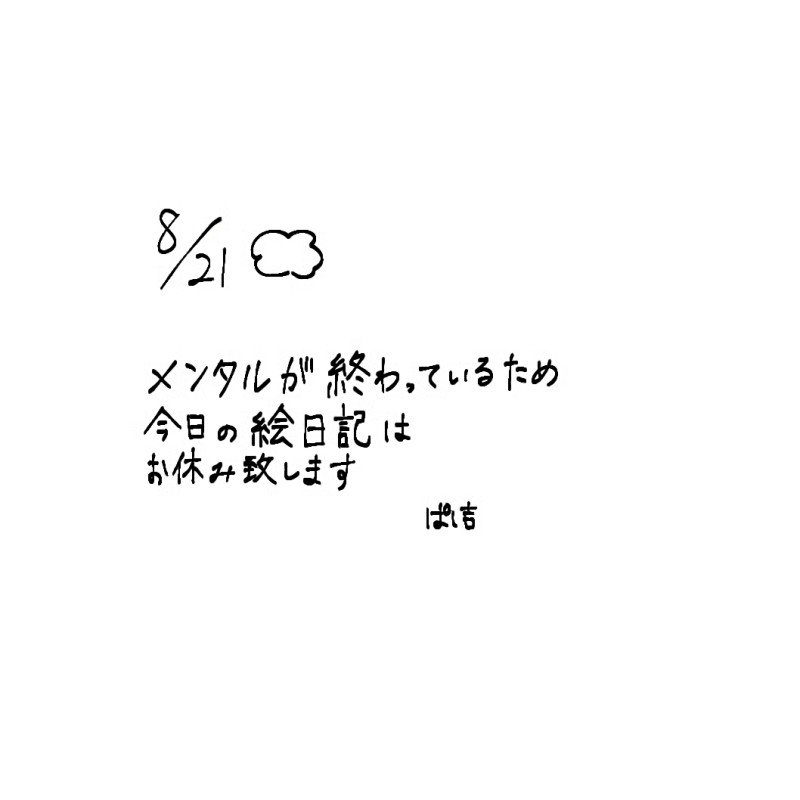 8/21
メンタルが終わっているため
今日の絵日記は
お休み致します
ぱし吉